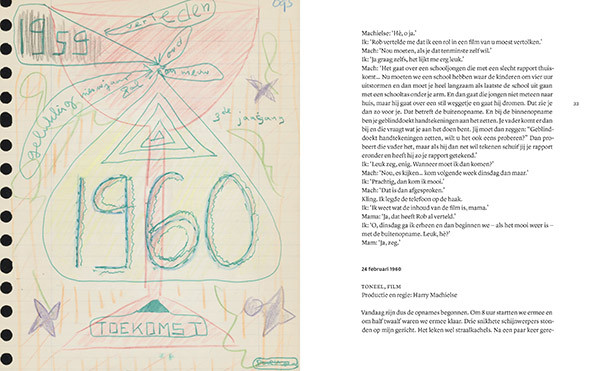 1959
verleden
oud
en nieuw
gelukkig
nieuwjaar
3de jaargang
1960
TOEKOMST
Machielse: ‘Hè, o ja.’
Ik: ‘Rob vertelde me dat ik een rol in een film van u moest vertolken.’
Mach: ‘Nou moeten, als je dat tenminste zelf wil.’
Ik: ‘Ja graag zelfs, het lijkt me erg leuk.’
Mach: ‘Het gaat over een schooljongen die met een slecht rapport thuis-
komt... Nu moeten we een school hebben waar de kinderen om vier uur
uitstormen en dan moet je heel langzaam als laatste de school uit gaan
met een schooltas onder je arm. En dan gaat die jongen niet meteen naar
huis, maar hij gaat over een stil weggetje en gaat hij dromen. Dat zie je
dan zo voor je. Dat betreft de buitenopname. En bij de binnenopname
ben je geblinddoekt handtekeningen aan het zetten. Je vader komt er dan
bij en die vraagt wat je aan het doen bent. Jij moet dan zeggen: “Geblind-
doekt handtekeningen zetten, wilt u het ook eens proberen?” Dan pro-
beert die vader het, maar als hij dan net wil tekenen schuif jij je rapport
eronder en heeft hij zo je rapport getekend.’
Ik: ‘Leuk zeg, enig. Wanneer moet ik dan komen?’
Mach: ‘Nou, es kijken... kom volgende week dinsdag dan maar.’
Ik: ‘Prachtig, dan kom ik mooi.’
Mach: ‘Dat is dan afgesproken.’
Kling. Ik legde de telefoon op de haak.
Ik: ‘Ik weet wat de inhoud van de film is, mama.’
Mama: ‘Ja, dat heeft Rob al verteld.’
Ik: ‘O, dinsdag ga ik erheen en dan beginnen we – als het mooi weer is –
met de buitenopname. Leuk, hè?’
Mam: ‘Ja, zeg.’
33
24 februari 1960
TONEEL, FILM
Productie en regie: Harry Machielse
Vandaag zijn dus de opnames begonnen. Om 8 uur startten we ermee en
om half twaalf waren we ermee klaar. Drie snikhete schijnwerpers ston-
den op mijn gezicht. Het leken wel straalkachels. Na een paar keer gere-